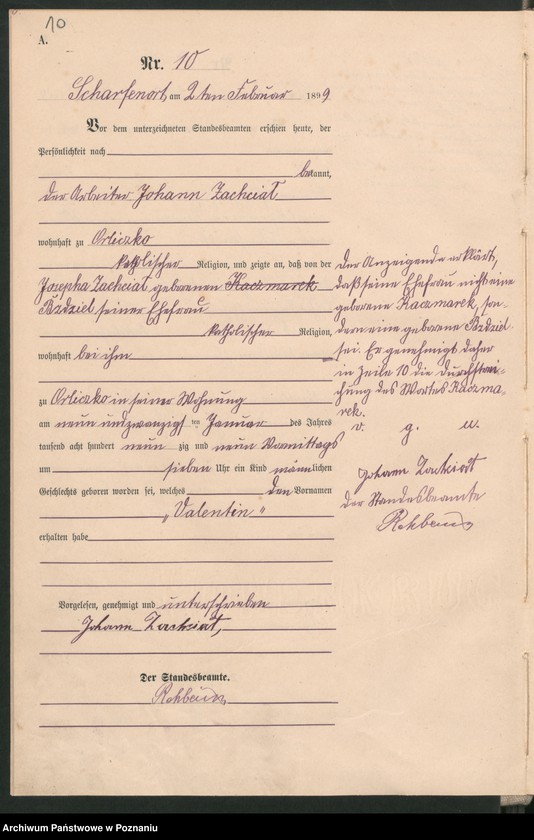 10
A.
Nr. 10
Scharfenort, am 2 ten Februar 1899
Vor dem unterzeichneten Standesbeamten erschien heute, der
Persönlichkeit nach
bekannt,
der Arbeiter Johann Zachciał
wohnhaft zu Orliczko
katholischer Religion, und zeigte an, daß von der
Josepha Zachciał geborenen Kaczmarek
Bzdziel seiner Ehefrau
katholischer Religion,
wohnhaft bei ihm
zu Orliczko in seiner Wohnung
am neun und zwanzigst ten Januar des Jahres
tausend acht hundert neun zig und neun Vormittags
um sieben Uhr ein Kind männlichen
Geschlechts geboren worden sei, welches den Vornamen
„Valentin"
erhalten habe
Vorgelesen, genehmigt und unterschrieben
Johann
Der Standesbeamte.
der Anzeigende erklärt,
daß seine Ehefrau nicht eine
geborene Kaczmarek, son-
dern eine geborene Bzdziel
sei. Er genehmigt daher
in Zeile 10 die Durchstrei-
chung des Wortes Kaczma-
rek.
v. g. u.
Johann
der Standesbeamte
Archiwum Państwowe w Poznaniu